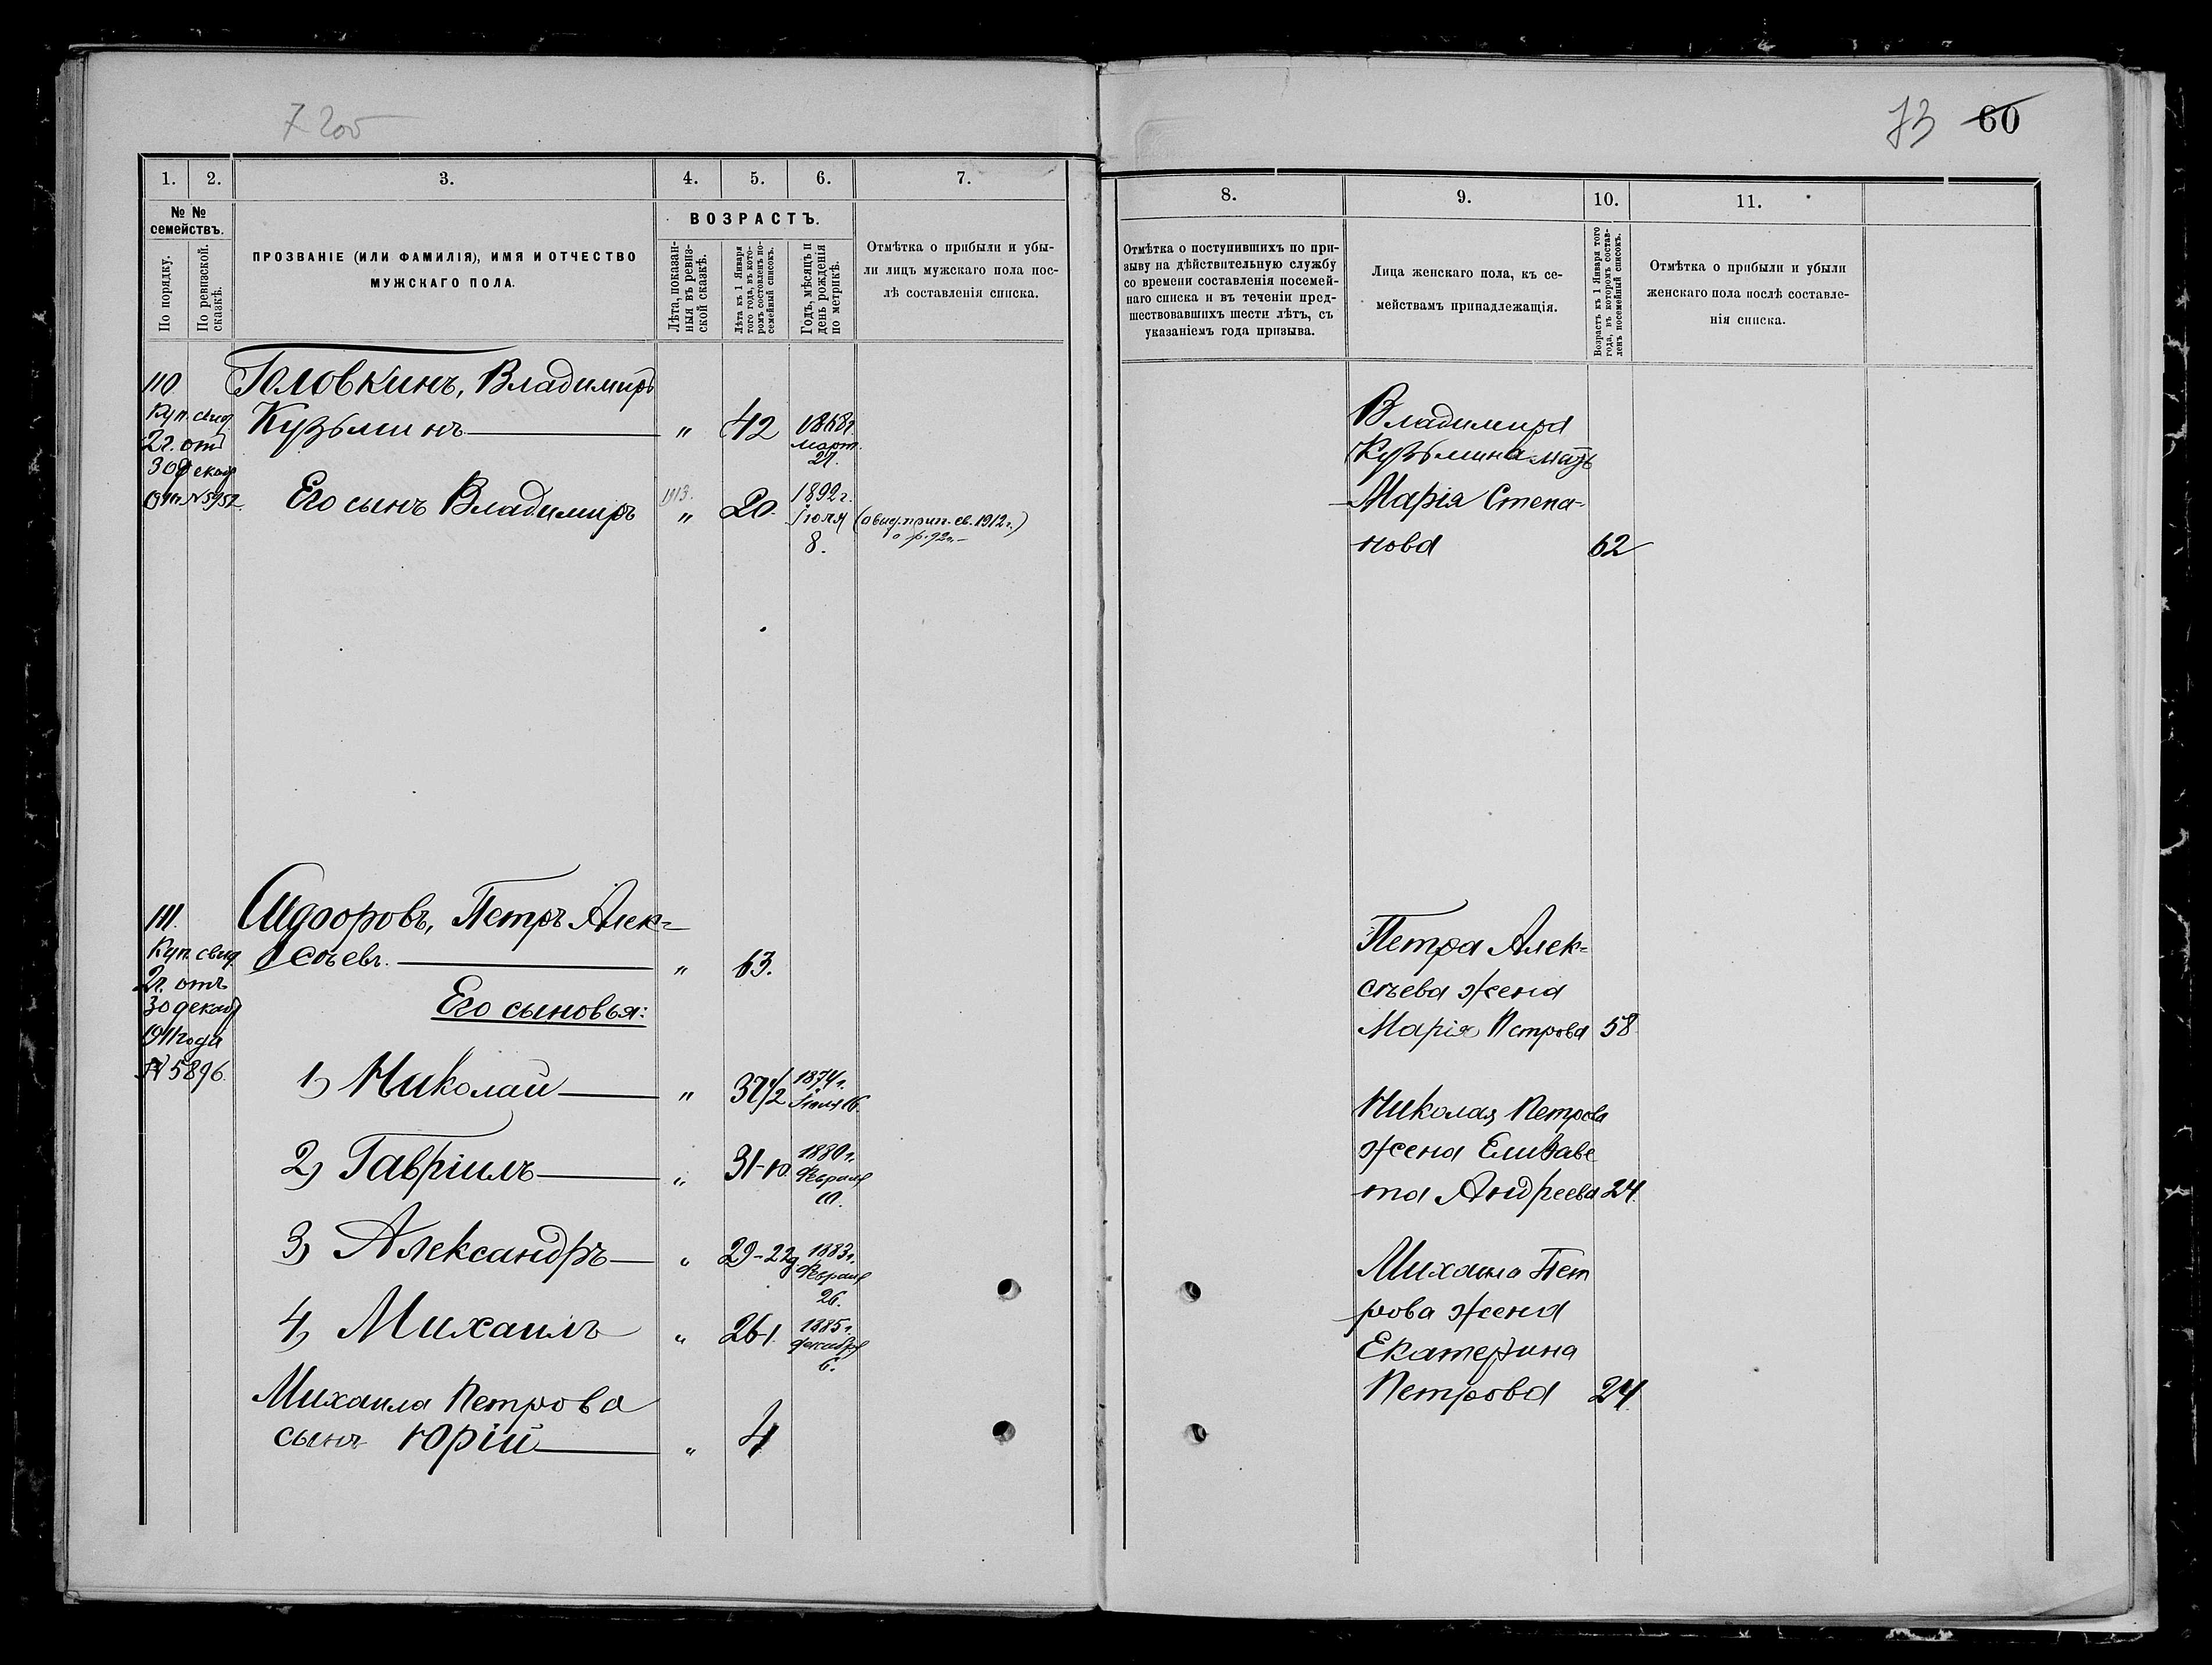 7 200
1. 2. 3. 4. 5. 6. 7.
№ №
семействъ.
По порядку.
По ревизской.
сказкѣ.
ПРОЗВАНІЕ (ИЛИ ФАМИЛІЯ), ИМЯ И ОТЧЕСТВО
МУЖСКАГО ПОЛА.
ВОЗРАСТЪ.
Лѣта, показан-
ныя въ ревиз-
ской сказкѣ.
Лѣта къ 1 Января
того года, въ кото-
ромъ составленъ по-
семейный списокъ.
Годъ, мѣсяцъ и
день рожденія
по метрикѣ.
Отмѣтка о прибыли и убы-
ли лицъ мужскаго пола пос-
лѣ составленія списка.
110 Головкинъ, Владимиръ
Куп. свид.
2 г. отъ
30 декаб
1911 № 5952
Кузьминъ " 42 1868 г.
март.
21.
Его сынъ Владимиръ 1913. " 20. 1892 г.
Іюля
8.
111. Сидоровъ, Петръ Алек-
сѣевъ. " 63.
Куп. свид.
2 г. отъ
30 декаб
1911 года
№ 5896.
Его сыновья:
1) Николай " 37 1/2 1874 г.
Іюля 16.
2) Гавріилъ " 31-10. 1880 г.
Февраля
10.
3) Александръ " 29-22 1883 г.
Февраля
26.
4) Михаилъ " 26-1. 1885 г.
декабря
6.
Михаила Петрова
сынъ Юрій " 4
73 60
8. 9. 10. 11.
Отмѣтка о поступившихъ по при-
зыву на дѣйствительную службу
со времени составленія посемей-
наго списка и въ теченіи пред-
шествовавшихъ шести лѣтъ, съ
указаніемъ года призыва.
Лица женскаго пола, къ се-
мействамъ принадлежащія.
Возрастъ къ 1 Января того
года, въ которомъ состав-
ленъ посемейный списокъ.
Отмѣтка о прибыли и убыли
женскаго пола послѣ составле-
нія списка.
Владимира
Кузьмина мать
Марія Степа-
нова 62
Петра Алек-
сѣева жена
Марія Петрова 58
Николая Петрова
жена Елизаве
та Андреева 24.
Михаила Пет
рова жена
Екатерина
Петрова 24.